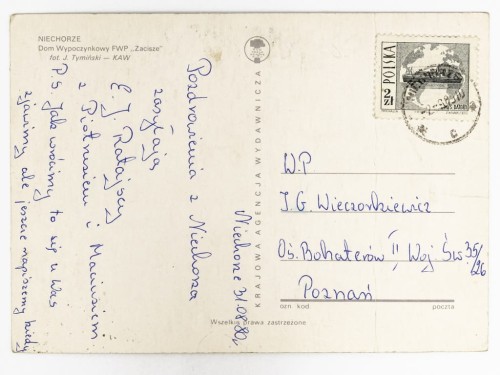 NIECHORZE
Dom Wypoczynkowy FWP „Zacisze"
fot. J. Tymiński — KAW
Niechorze 31.08.80r
Pozdrowienia z Niechorza
zasyłają
E. J. Ratajscy
z Piotrusiem i Maciusiem
P.S. Jak wrócimy to się u Was
zjawimy ale jeszcze napiszemy kiedy
KRAJOWA AGENCJA WYDAWNICZA
POLSKA
2 ZŁ
W.P
J. G. Wieczorkiewicz
Oś. Bohaterów II Woj. Św 35/26
Poznań
ozn. kod
poczta
Wszelkie prawa zastrzeżone